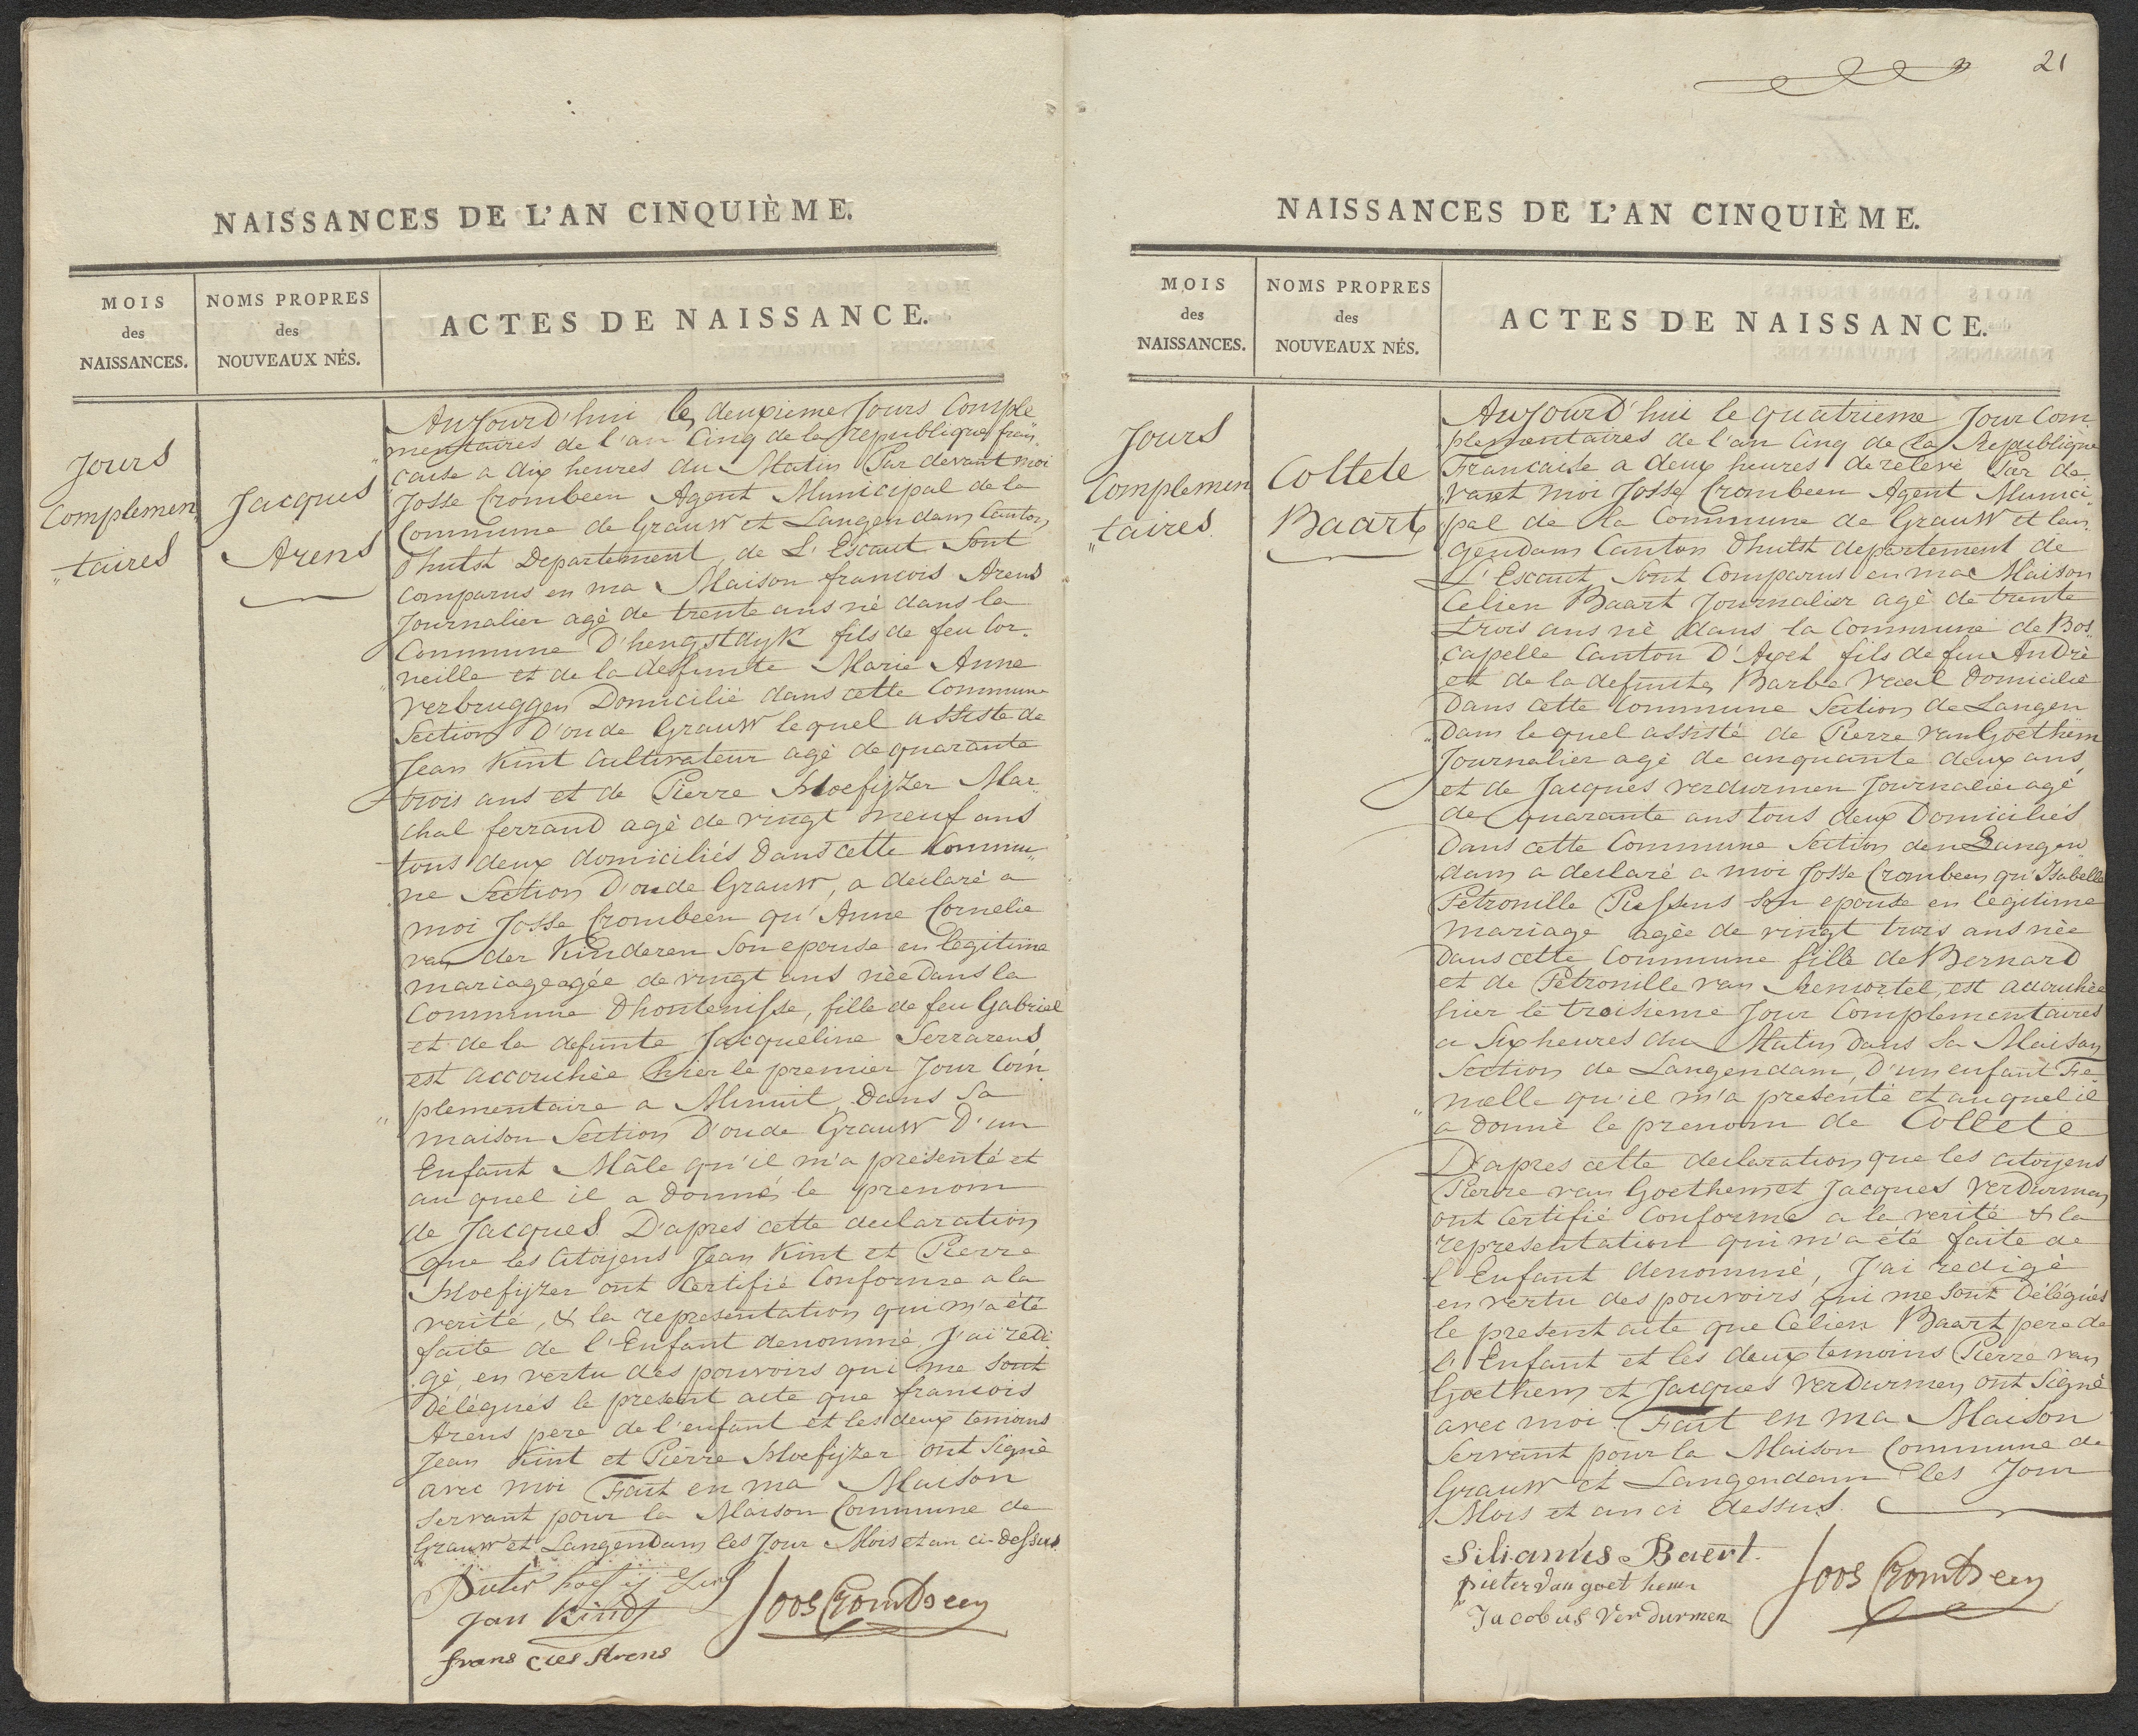 NAISSANCES DE L'AN CINQUIÈME.
MOIS
des
NAISSANCES.
NOMS PROPRES
des
NOUVEAUX NÉS.
ACTES DE NAISSANCE.
Jours
Complemen
"taires
Jacques
Arens
Aujourd'hui les deuxieme Jours Comple
mentaires de l'an Cinq de la republique fran
"caise a dix heures du Matin Par devant moi
Josse Crombeen Agent Municipal de la
Commune de Grauw et Langendam Canton
d'hulst Departement de L'Escaut Sont
comparus en ma Maison francois Arens
Journalier agé de trente ans né dans la
Commune D'hengstdyk fils de feu Cor-
"neille et de la deffunte Marie Anne
Verbruggen Domicilié dans cette Commune
Section D'oude Grauw lequel assiste de
Jean Kint Cultivateur agé de quarante
trois ans et de Pierre Hoefijzer Mar"
chal ferrand agé de vingt neuf ans
tous deux domiciliés Dans cette Commu"
ne Section D'oude Grauw, a declaré a
moi Josse Crombeen qu'Anne Cornelie
van der Kinderen Son epouse en legitime
mariage agée de vingt ans née Dans la
Commune d'hontenisse, fille de feu Gabriel
et de la defunte Jacqueline Serrarens
est accouchée hier le premier Jour Com
"plementaire a Minuit, Dans Sa
maison Section D'oude Grauw D'un
Enfant Mâle qu'il m'a présenté et
au quel il a donné le prenom
de Jacques D'apres cette declaration
que les Citoijens Jean Kint et Pierre
Hoefijzer ont Certifié Conforme a la
verité, & la representation qui m'a été
faite de l'Enfant denommé J'ai redi
gé en vertu des pouvoirs qui me Sont
Délégués le present acte que francois
Arens pere de l'enfant et les deux temoins
Jean Kint et Pierre Hoefijzer ont Signé
avec moi Fait en ma Maison
Servant pour la Maison Commune de
Grauw et Langendam les Jour Mois et an ci-dessus.
Jan Kindt
frans cies Arens
Joos Crombeen
21
NAISSANCES DE L'AN CINQUIÈME.
MOIS
des
NAISSANCES.
NOMS PROPRES
des
NOUVEAUX NÉS.
ACTES DE NAISSANCE.
Jours
Complemen
"taires
Collete
Baart
Aujourd'hui le quatrieme Jour Com
plementaires de l'an Cinq de la Republique
Francaise a deux heures de relevé Par de
vant moi Josse Crombeen Agent Munici
"pal de la Commune de Grauw et lan
gendam Canton d'hulst departement de
L'Escaut, Sont Comparus en ma Maison
Celien Baart Journalier agé de trente
trois ans né dans la Commune de Bos"
capelle Canton D'Axel fils de feu André
et de la defunte Barbe Domicilié
Dans cette Commune Section de Langen
"Dam lequel assisté de Pierre van Goethem
Journalier agé de cinquante deux ans
et de Jacques verdurmen Journalier agé
de quarante ans tous deux Domiciliés
Dans cette Commune Section den Langen
dam a declaré a moi Josse Crombeen qu'Isabelle
Petronille Piessens Son epouse en legitime
mariage agée de vingt trois ans née
Dans cette Commune fille de Bernard
et de Petronille van Remortel, est accouchée
hier le troisieme Jour Complementaires
a Six heures du Matin Dans Sa Maison
Section de Langendam, D'un enfant Fe
"melle qu'il m'a presenté et auquel il
a donné le prenom de Collete
D'apres cette declaration que les citoijens
Pierre van Goethem et Jacques Verdurmen
ont Certifié Conforme a la verité & la
representation qui m'a été faite de
l'Enfant denommé, J'ai redigé
en vertu des pouvoirs qui me Sont Délégués
le present acte que Celien Baart pere de
l'Enfant et les deux temoins Pierre van
Goethem et Jacques Verdurmen ont Signé
avec moi. Fait en ma Maison
Servant pour la Maison Commune de
Grauw et Langendam les Jour
Mois et an ci dessus.
Silianus Baert.
pieter van goethem
Jacobus Verdurmen
Joos Crombeen